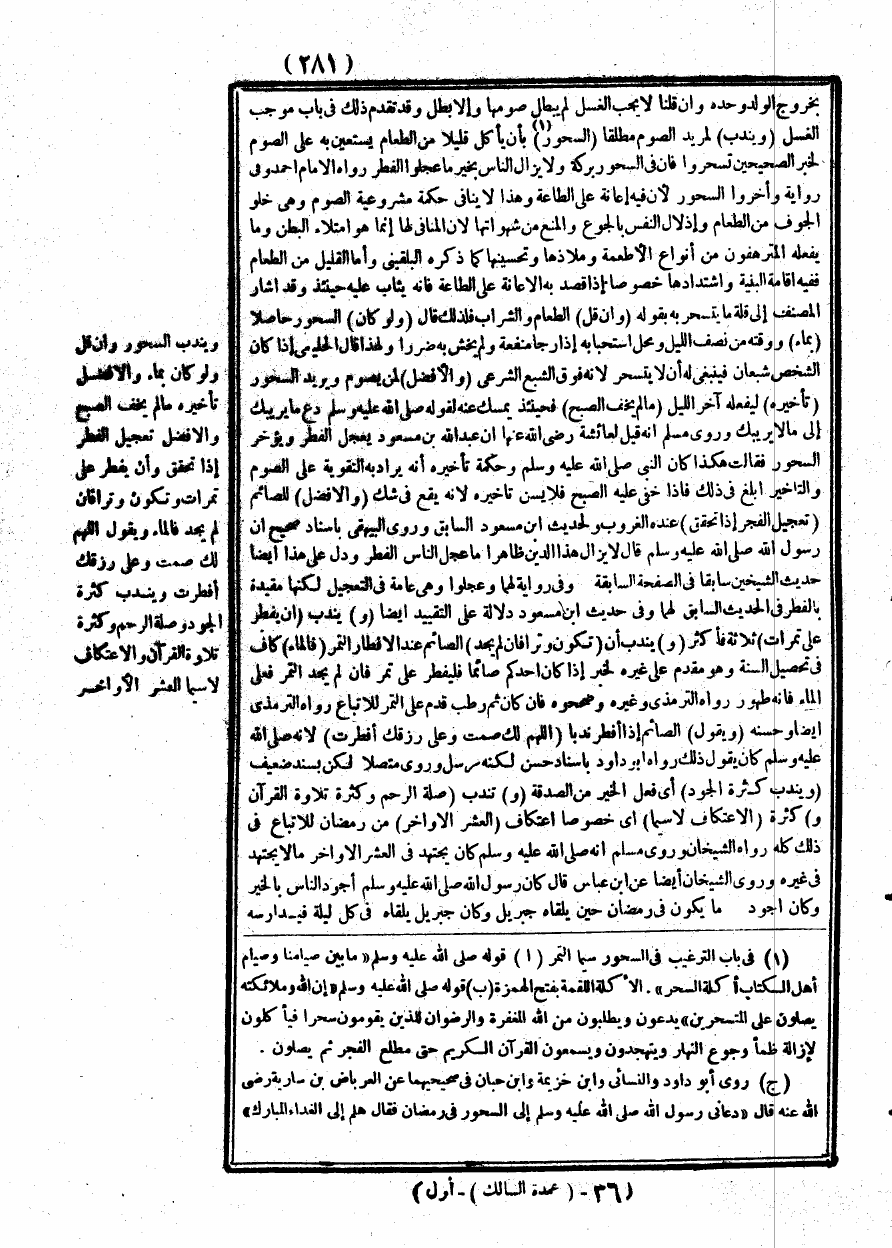 (٢٨١)
بخروج الولد وحده وان قلنا لا يجب الغسل لم يبطل صومها وإلا بطل وقد تقدم ذلك فى باب موجب
الغسل (ويندب) لمريد الصوم مطلقا (السحور)(١) بأن يأكل قليلا من الطعام يستعين به على الصوم
لخبر الصحيحين تسحروا فان فى السحور بركة ولا يزال الناس بخير ما عجلوا الفطر رواه الامام احمد وفى
رواية وأخروا السحور لأن فيه إعانة على الطاعة وهذا لا ينافى حكمة مشروعية الصوم وهى خلو
الجوف من الطعام وإذلال النفس بالجوع والمنع من شهواتها لان المنافى لها إنما هو امتلاء البطن وما
يفعله المترهفون من أنواع الأطعمة وملاذها وتحسينها كما ذكره البلقينى وأما القليل من الطعام
ففيه اقامة البنية واشتدادها خصوصا إذا قصد به الاعانة على الطاعة فانه يثاب عليه حينئذ وقد اشار
المصنف إلى قلة ما يتسحر به بقوله (وان قل) الطعام والشراب فلذلك قال (ولو كان) السحور حاصلا
(بماء) ووقته من نصف الليل ومحل استحبابه إذا رجا منفعة ولم يخش به ضررا ولهذا قال الحليمى إذا كان
الشخص شبعان فينبغى له أن لا يتسحر لانه فوق الشبع الشرعى (والأفضل) لمن يصوم ويريد السحور
(تأخيره) ليفعله آخر الليل (مالم يخف الصبح) فحينئذ يمسك عنه لقوله صلى الله عليه وسلم دع ما يريبك
إلى مالا يريبك وروى مسلم انه قيل لعائشة رضى الله عنها ان عبدالله بن مسعود يعجل الفطر ويؤخر
السحور فقالت هكذا كان النبى صلى الله عليه وسلم وحكمة تأخيره أنه يراد به التقوية على الصوم
والتاخير ابلغ فى ذلك فاذا خفى عليه الصبح فلا يسن تاخيره لانه يقع فى شك (والافضل) للصائم
(تعجيل الفجر إذا تحقق) عنده الغروب ولحديث ابن مسعود السابق وروى البيهقى باسناد صحيح ان
رسول الله صلى الله عليه وسلم قال لا يزال هذا الدين ظاهرا ما عجل الناس الفطر ودل على هذا أيضا
حديث الشيخين سابقا فى الصفحة السابقة وفى رواية لهما وعجلوا وهى عامة فى التعجيل لكنها مقيدة
بالفطر فى الحديث السابق لهما وفى حديث ابن مسعود دلالة على التقييد ايضا (و) يندب (ان يفطر
على تمرات) ثلاثة فأكثر (و) يندب أن (تكون وترا فان لم يجد) الصائم عند الافطار التمر (فالماء) كاف
فى تحصيل السنة وهو مقدم على غيره لخبر إذا كان احدكم صائما فليفطر على تمر فان لم يجد التمر فعلى
الماء فانه طهور رواه الترمذى وغيره وصححوه فان كان ثم رطب قدم على التمر للاتباع رواه الترمذى
ايضا وحسنه (ويقول) الصائم إذا أفطر ندبا (اللهم لك صمت وعلى رزقك أفطرت) لانه صلى الله
عليه وسلم كان يقول ذلك رواه ابو داود باسناد حسن لكنه مرسل وروى متصلا لكن بسند ضعيف
(ويندب كثرة الجود) أى فعل الخير من الصدقة (و) تندب (صلة الرحم وكثرة تلاوة القرآن
و) كثرة (الاعتكاف لاسيما) اى خصوصا اعتكاف (العشر الاواخر) من رمضان للاتباع فى
ذلك كله رواه الشيخان وروى مسلم انه صلى الله عليه وسلم كان يجتهد فى العشر الاواخر مالا يجتهد
فى غيره وروى الشيخان أيضا عن ابن عباس قال كان رسول الله صلى الله عليه وسلم أجود الناس بالخير
وكان اجود ما يكون فى رمضان حين يلقاه جبريل وكان جبريل يلقاه فى كل ليلة فيدارسه
ويندب السحور وان قل
ولو كان بماء والافضل
تأخيره مالم يخف الصبح
والافضل تعجيل الفطر
إذا تحقق وأن يفطر على
تمرات وتكون وترا فان
لم يجد فالماء ويقول اللهم
لك صمت وعلى رزقك
أفطرت ويندب كثرة
الجود وصلة الرحم وكثرة
تلاوة القرآن والاعتكاف
لاسيما العشر الأواخر
(١) فى باب الترغيب فى السحور سيما التمر (ا) قوله صلى الله عليه وسلم «ما بين صيامنا وصيام
أهل الكتاب أكلة السحر». الأكلة اللقمة بفتح الهمزة (ب) قوله صلى الله عليه وسلم «إن الله وملائكته
يصلون على المتسحرين» يدعون ويطلبون من الله المغفرة والرضوان للذين يقومون سحرا فيأكلون
لإزالة ظمأ وجوع النهار ويتهجدون ويسمعون القرآن الكريم حتى مطلع الفجر ثم يصلون .
(ج) روى أبو داود والنسائى وابن خزيمة وابن حبان فى صحيحيهما عن العرباض بن سارية رضى
الله عنه قال «دعانى رسول الله صلى الله عليه وسلم إلى السحور فى رمضان فقال هلم إلى الغداء المبارك»
(٣٦ - (عمدة السالك) - أول)